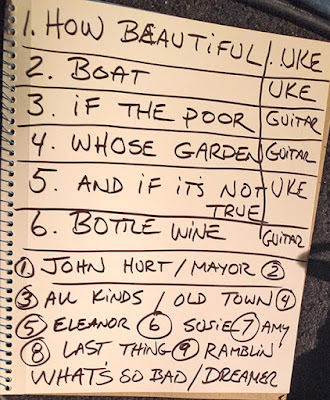 1. HOW BEAUTIFUL / . UKE
2. BOAT UKE
3. IF THE POOR GUITAR
4. WHOSE GARDEN GUITAR
5. AND IF IT'S NOT UKE
TRUE
6. BOTTLE WINE GUITAR
① JOHN HURT / MAYOR ②
③ ALL KINDS / OLD TOWN ④
⑤ ELEANOR ⑥ SUSIE ⑦ AMY
⑧ LAST THING ⑨ RAMBLIN'
WHAT'S SO BAD / DREAMER